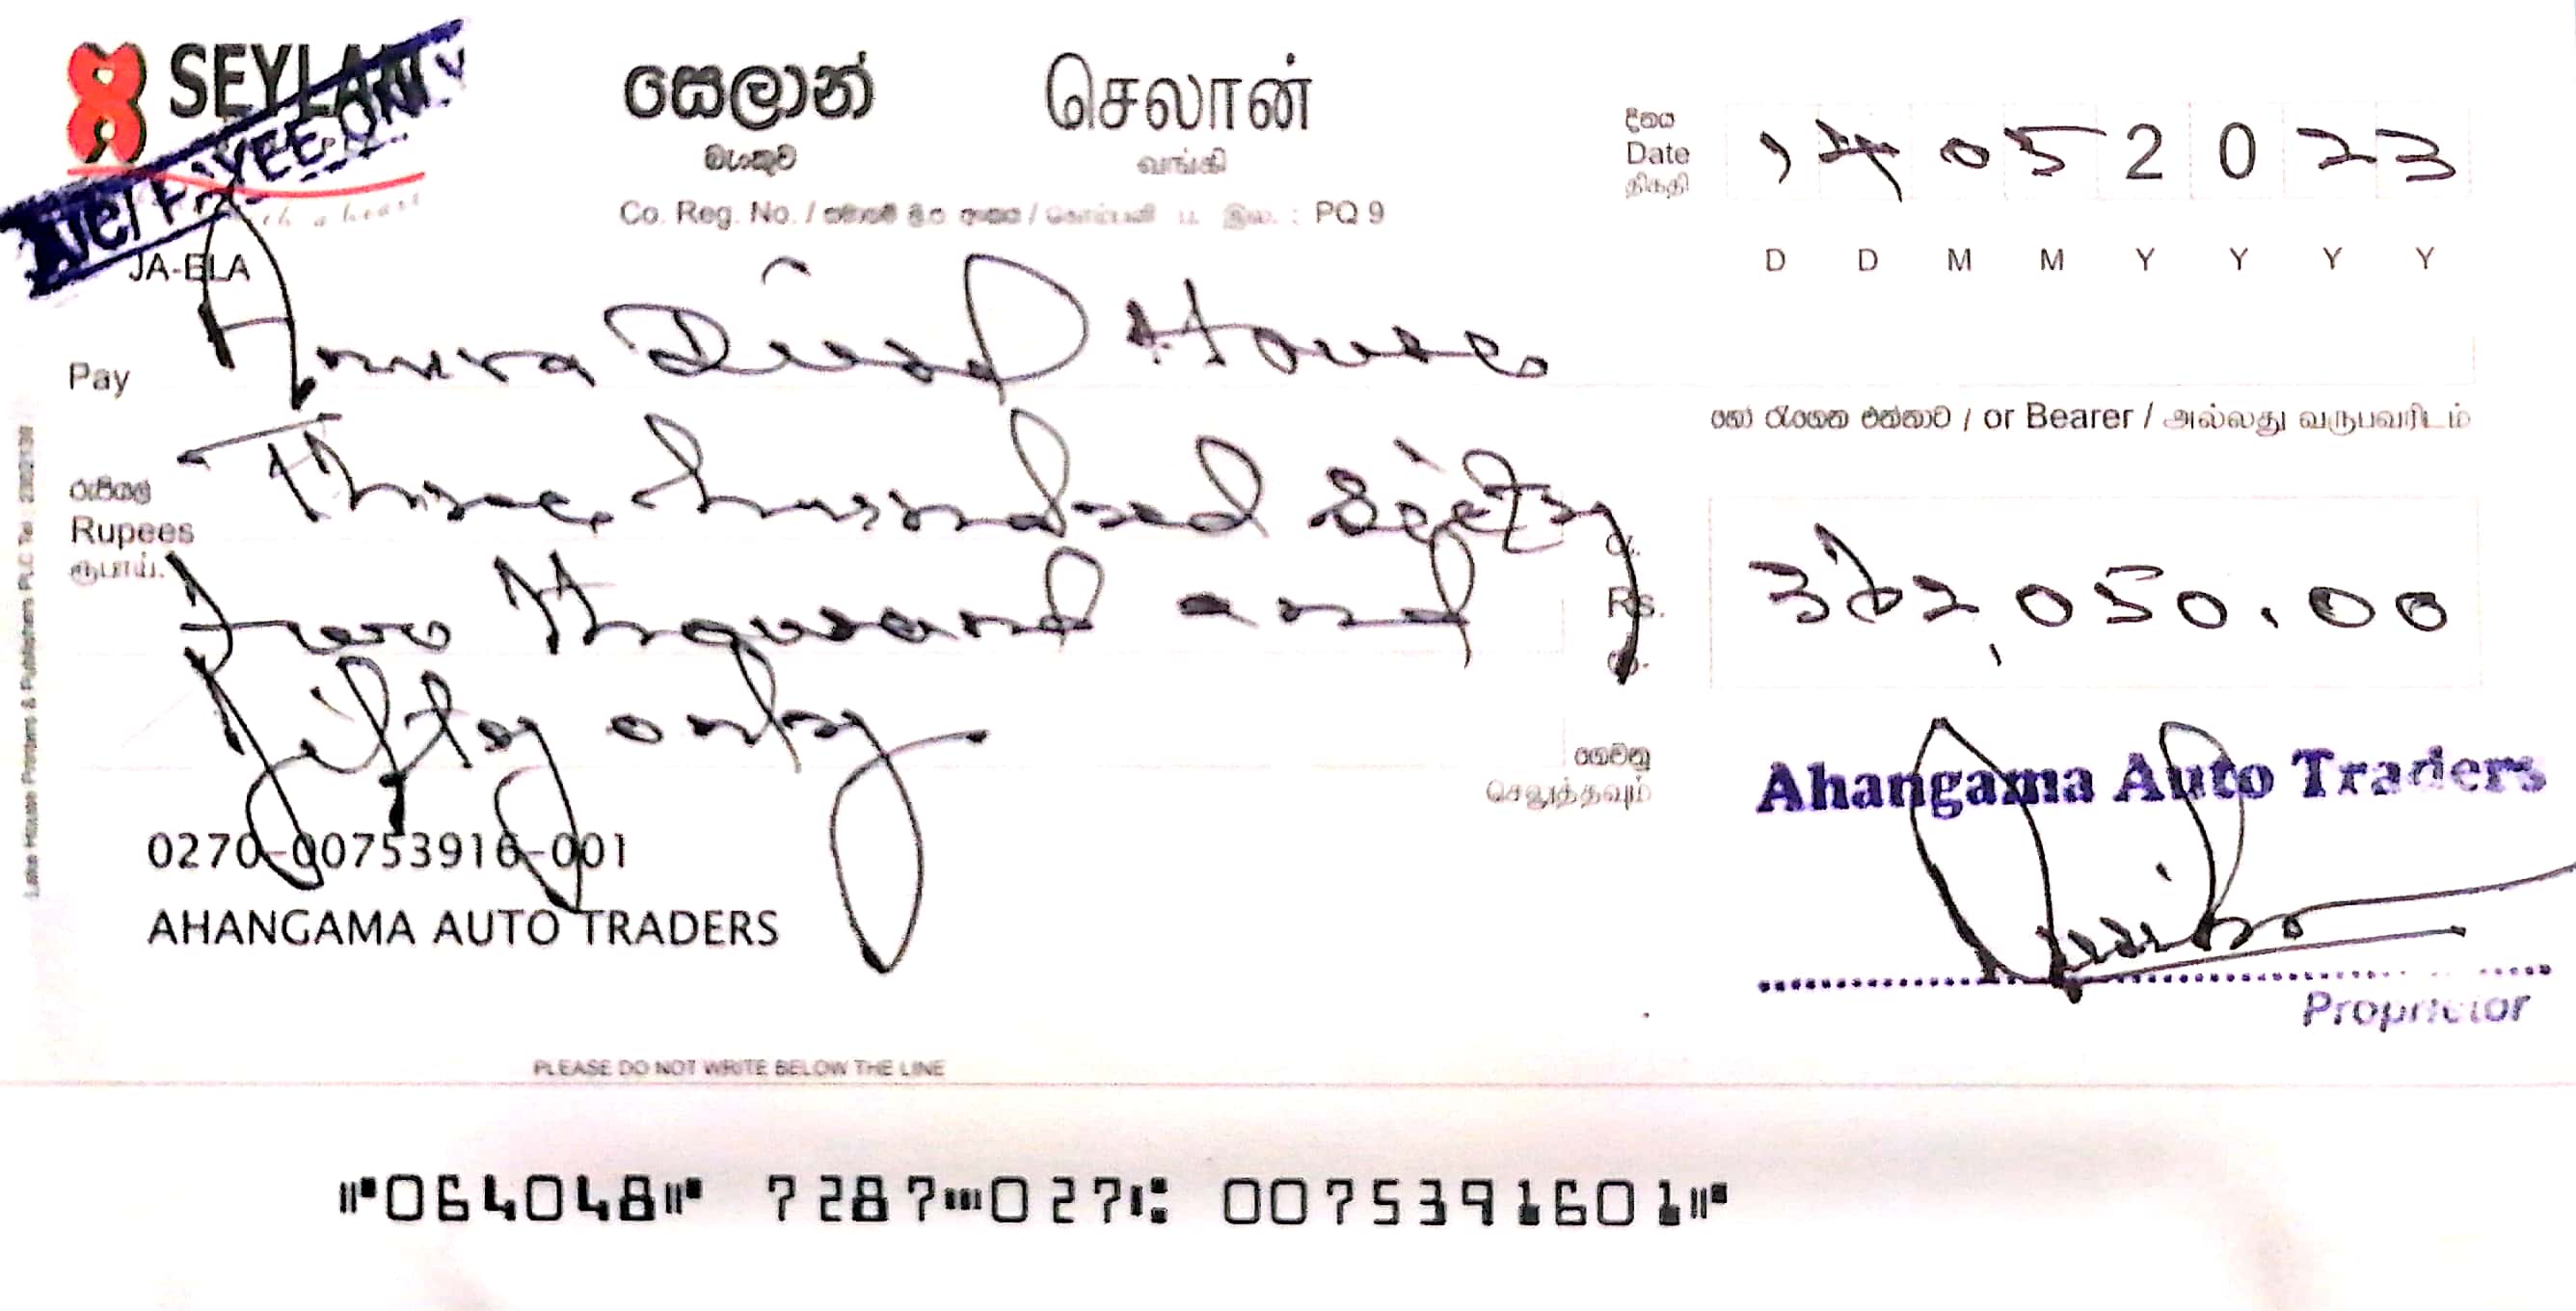 SEYLAN
A/C PAYEE ONLY
සෙලාන්
බැංකුව
செலான்
வங்கி
Co. Reg. No. / PQ 9
දිනය
Date
திகதி
14 05 2023
D D M M Y Y Y Y
JA-ELA
Pay Anura Diesel House
හෝ රැගෙන එන්නාට / or Bearer / அல்லது வருபவரிடம்
රුපියල්
Rupees
ரூபாய்.
Three hundred Sixty
two Thousand and
fifty only
රු.
Rs.
ரூ.
362,050.00
ගෙවනු
செலுத்தவும்
Ahangama Auto Traders
Proprietor
0270-00753916-001
AHANGAMA AUTO TRADERS
Lake House Printers & Publishers PLC Tel : 2302139
PLEASE DO NOT WRITE BELOW THE LINE
⑈064048⑈ 7287⑉027⑆ 007539160 1⑈